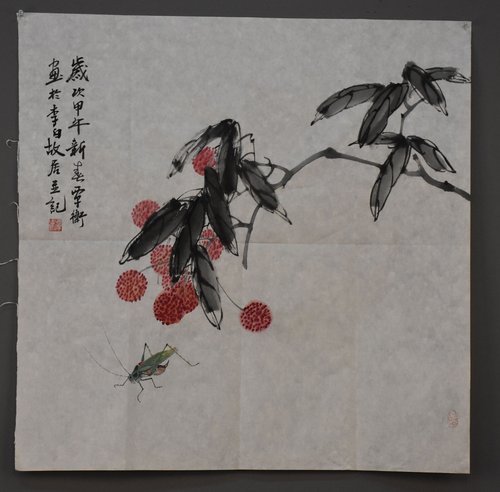 歲次甲午新春覃
畫於李白故居並記